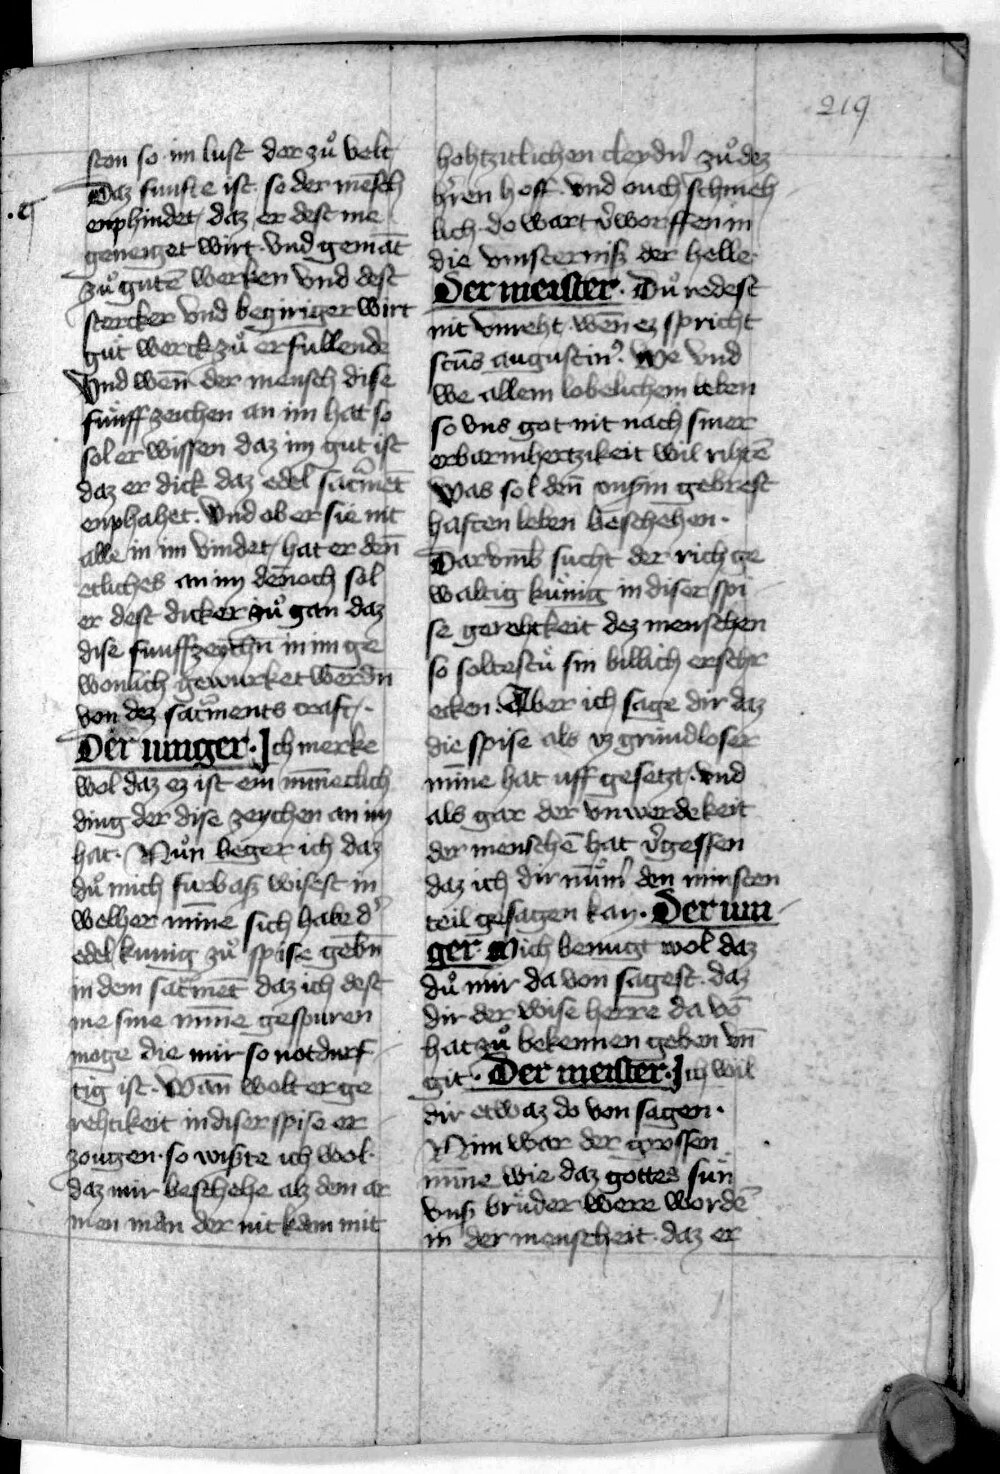 219
sten so im lust der zuͦ velt
Daz funfte ist so der mēsch
enphindet daz er dest me
geneiget wirt vnd gemāt
zuͦ gutē werken vnd dest
stercker vnd begiriger wirt
gůt werck zuͦ erfullende
Vnd wen̄ der mensch dise
fúnff zeichen an im hat so
sol er wissen daz im gut ist
daz er dick daz edel sac̄mēt
enphahet. Vnd ob er sie nit
alle in im vindet hat er den̄
etliches an im dēnoch sol
er dest dicker zuͦ gan daz
dise funffzeichn̄ in im ge
wonlich gewurket werdn̄
von dez sac̄ments craft.
Der iunger. Ich merke
wol daz ez ist ein mīneclich
ding der dise zeychen an im
hat. Nuͦn beger ich daz
duͦ mich furbasz wisest in
welher mīne sich habe dˢ
edel kunig zuͦ spise gebn̄
in dem sac̄mēt daz ich dest
me sine mīne gespuren
moge die mir so notdurf
tig ist. Wan̄ wolt er ge
rehtikeit in diser spise er
zougen. so wiste ich wol.
daz mir beschehe alz dem ar
men man der nit kam mit
hohtzitlichen cleydn̄ zuͦ dez
hˢren hoff. vnd ouch schmeh
lich do wart vˢworffen in
die vinsternisz der helle.
Der meister. Duͦ redest
nit vnreht. wen̄ ez spricht
scūs augustinꝰ. We vnd
we allem lobelichem leben
so vns got nit nach siner
erbarmhertzikeit wil rihtē
Was sol den̄ vnsˢm gebrest
haften leben beschehen.
Darvmb sucht der rich ge
waltig kúnig in diser spi
se gerehtkeit dez menschen
so soltestuͦ sin billich erschr
ecken. Aber ich sage dir daz
die spise als vz grundloser
mīne hat uff gesetzt. vnd
als gar der vnwerdekeit
der menschē hat vˢgessen
daz ich dir nūmˢ den minsten
teil gesagen kan. Der iun
ger. Mich benugt wol daz
duͦ mir da von sagest. daz
dir der wise herre da vō
hat zuͦ bekennen geben vn̄
git. Der meister. Ich wil
dir etwaz do von sagen.
Nim war der grossen
mīne wie daz gottes sun
vnsz bruder were wordē
in der menscheit. daz er